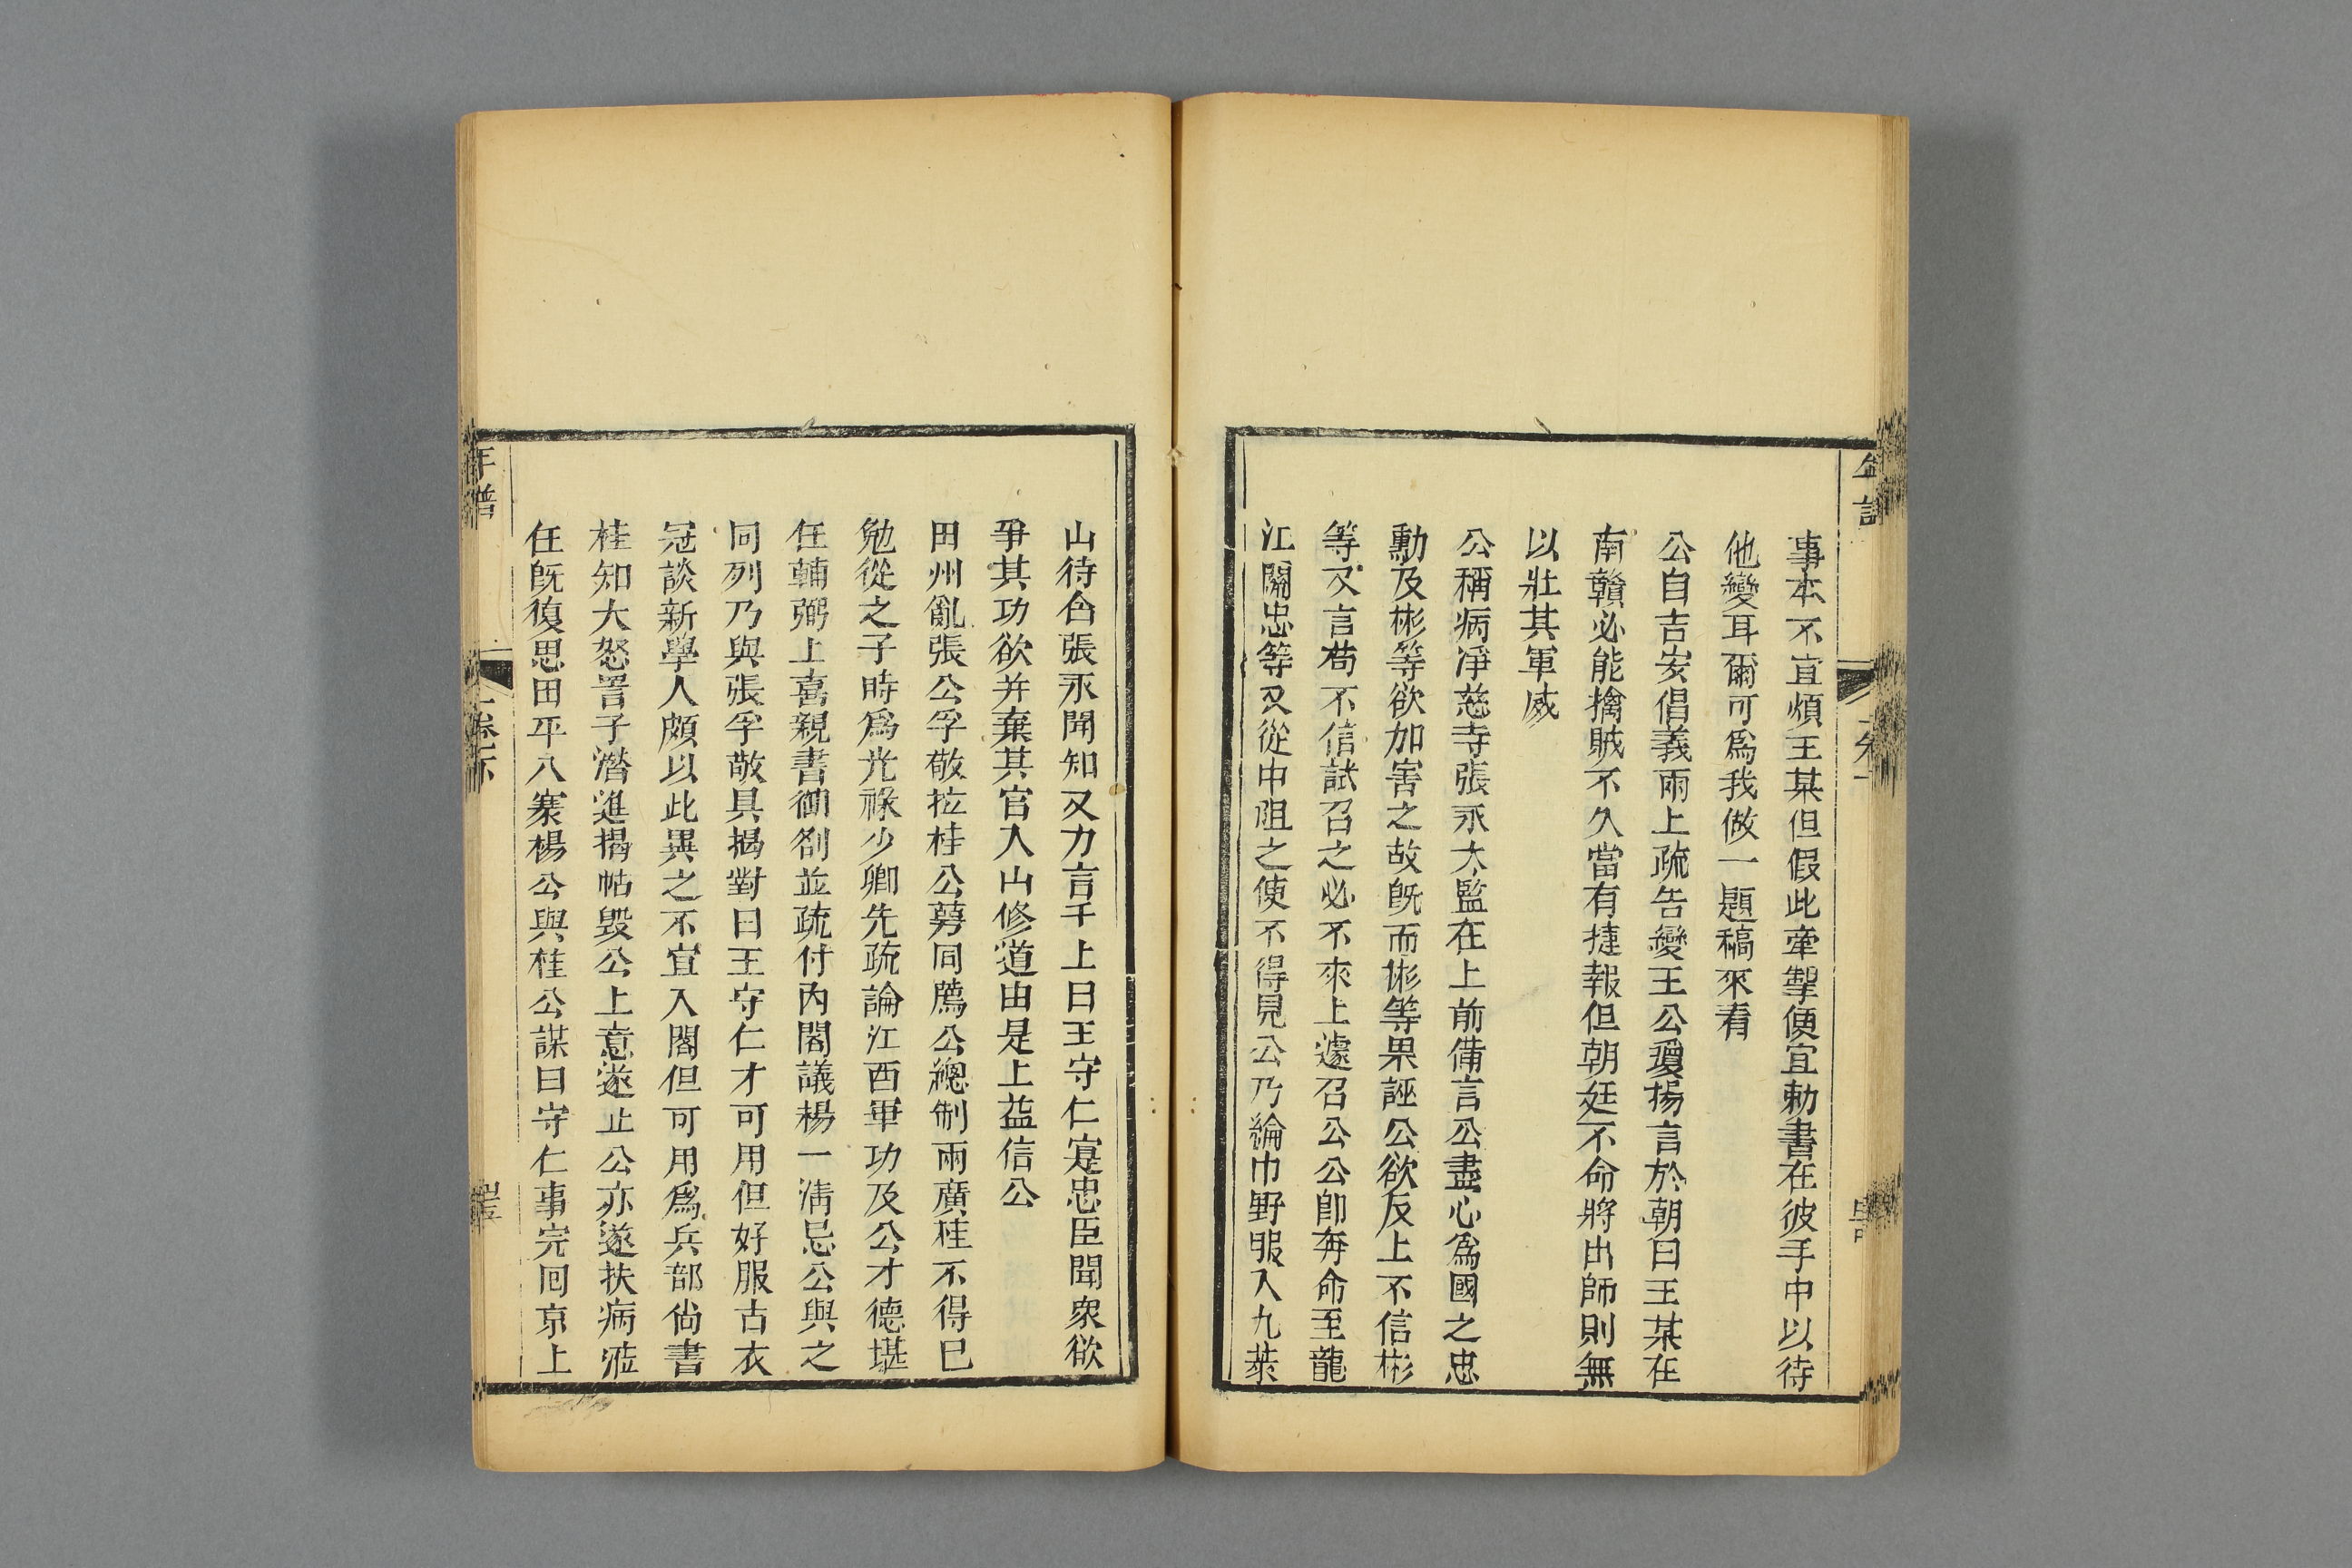 事本不宜煩王某但假此牽掣便宜勅書在彼手中以待
他變耳爾可爲我做一題稿來看
公自吉安倡義兩上疏告變王公瓊揚言於朝曰王某在
南贛必能擒賊不久當有捷報但朝廷不命將出師則無
以壯其軍威
公稱病淨慈寺張永太監在上前備言公盡心爲國之忠
勳及彬等欲加害之故旣而彬等果誣公欲反上不信彬
等又言苟不信試召之必不來上遽召公公卽奔命至龍
江關忠等又從中阻之使不得見公乃綸巾野服入九華
山待命張永聞知又力言于上曰王守仁寔忠臣聞衆欲
爭其功欲并棄其官入山修道由是上益信公
田州亂張公孚敬拉桂公萼同薦公總制兩廣桂不得已
勉從之子時爲光祿少卿先疏論江西軍功及公才德堪
任輔弼上喜親書御劄並疏付內閣議楊一淸忌公與之
同列乃與張孚敬具揭對曰王守仁才可用但好服古衣
冠談新學人頗以此異之不宜入閣但可用爲兵部尙書
桂知大怒詈子潛進揭帖毀公上意遂止公亦遂扶病涖
任旣復思田平八寨楊公與桂公謀曰守仁事完回京上
年譜
卷下